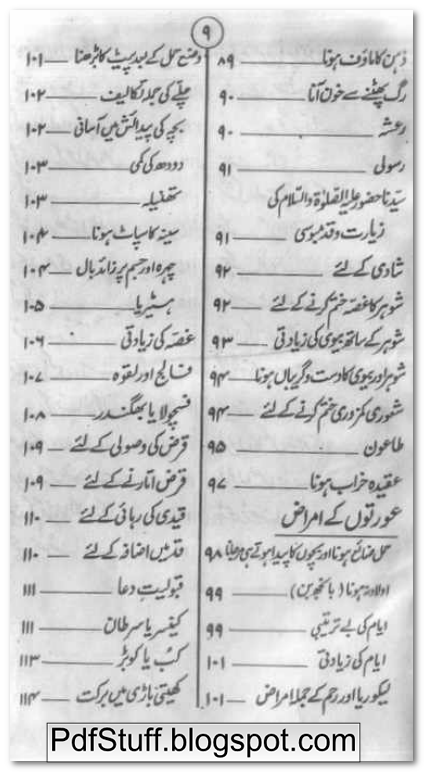 ۹
ذہن کا ماؤف ہونا ۸۹
رگ پھٹنے سے خون آنا ۹۰
رعشہ ۹۰
رسولی ۹۱
سیدنا حضور علیہ الصلوٰۃ والسلام کی
زیارت و قدمبوسی ۹۱
شادی کے لئے ۹۲
شوہر کا غصہ ختم کرنے کے لئے ۹۲
شوہر کے ساتھ بیوی کی زیادتی ۹۳
شوہر اور بیوی کا دست و گریباں ہونا ۹۴
شعوری کمزوری ختم کرنے کے لئے ۹۴
طاعون ۹۵
عقیدہ خراب ہونا ۹۷
عورتوں کے امراض
حمل ضائع ہونا اور بچوں کا پیدا ہوتے ہی مرجانا ۹۸
اولاد نہ ہونا (بانجھ پن) ۹۹
ایام کی بے ترتیبی ۹۹
ایام کی زیادتی ۱۰۱
لیکوریا اور رحم کے جملہ امراض ۱۰۱
وضع حمل کے بعد پیٹ کا بڑھنا ۱۰۱
چلّے کی جملہ تکالیف ۱۰۲
بچہ کی پیدائش میں آسانی ۱۰۲
دودھ کی کمی ۱۰۳
تھنیلہ ۱۰۳
سینہ کا سپاٹ ہونا ۱۰۴
چہرہ اور جسم پر زائد بال ۱۰۴
ہسٹیریا ۱۰۵
غصّہ کی زیادتی ۱۰۶
فالج اور لقوہ ۱۰۷
فسچولا یا بھگندر ۱۰۸
قرض کی وصولی کے لئے ۱۰۹
قرض اتارنے کے لئے ۱۰۹
قیدی کی رہائی کے لئے ۱۱۰
قد میں اضافہ کے لئے ۱۱۰
قبولیتِ دعا ۱۱۱
کینسر یا سرطان ۱۱۱
کُب یا کوبڑ ۱۱۳
کھیتی باڑی میں برکت ۱۱۴
PdfStuff.blogspot.com